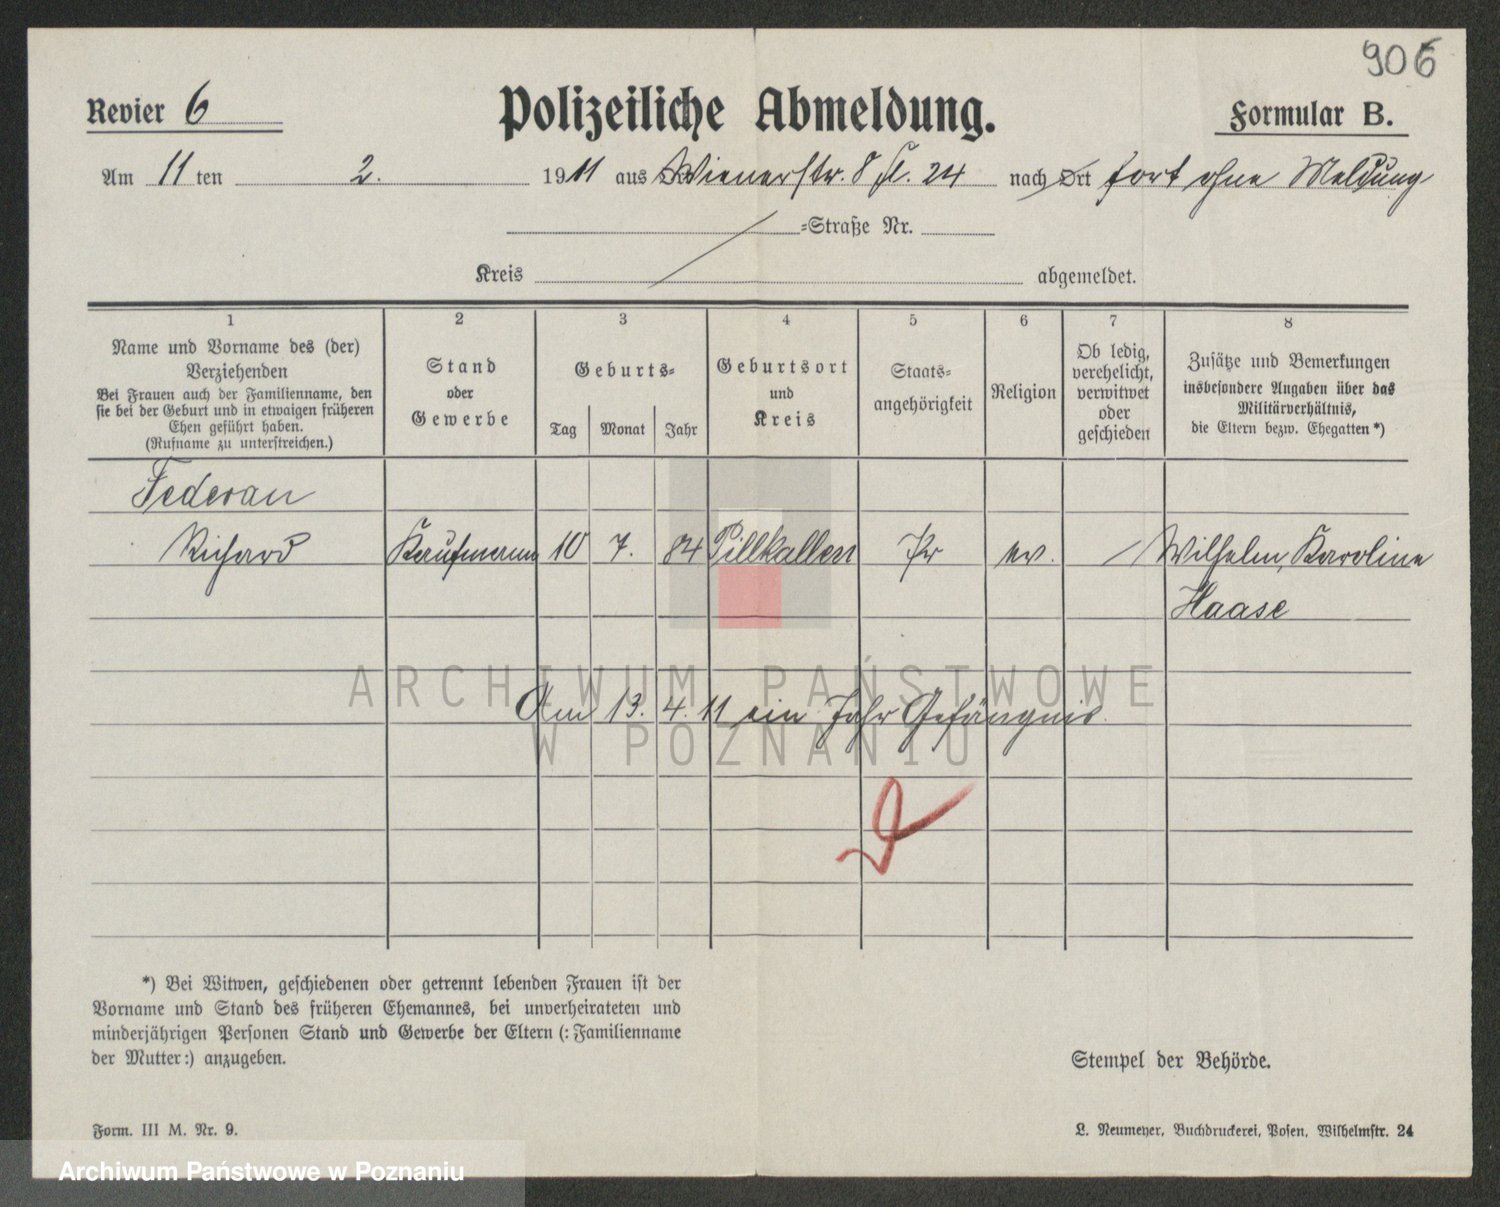 906
Revier 6
Polizeiliche Abmeldung.
Formular B.
Am 11 ten 2. 1911 aus Wienerstr. 8 24 nach Ort fort ohne Meldung
=Straße Nr.
Kreis abgemeldet.
1 2 3 4 5 6 7 8
Name und Vorname des (der)
Verziehenden
Bei Frauen auch der Familienname, den
sie bei der Geburt und in etwaigen früheren
Ehen geführt haben.
(Rufname zu unterstreichen.)
Stand
oder
Gewerbe
Geburts=
Tag Monat Jahr
Geburtsort
und
Kreis
Staats=
angehörigkeit
Religion
Ob ledig,
verehelicht,
verwitwet
oder
geschieden
Zusätze und Bemerkungen
insbesondere Angaben über das
Militärverhältnis,
die Eltern bezw. Ehegatten *)
Federau
Richard Kaufmann 10 7. 84 Pillkallen Pr ev. / Wilhelm, Karoline
Haase
ARCHIWUM PAŃSTWOWE
Am 13. 4. 11 ein Jahr Gefängnis
W POZNANIU
*) Bei Witwen, geschiedenen oder getrennt lebenden Frauen ist der
Vorname und Stand des früheren Ehemannes, bei unverheirateten und
minderjährigen Personen Stand und Gewerbe der Eltern (: Familienname
der Mutter :) anzugeben.
Stempel der Behörde.
Form. III M. Nr. 9.
L. Neumeyer, Buchdruckerei, Posen, Wilhelmstr. 24
Archiwum Państwowe w Poznaniu